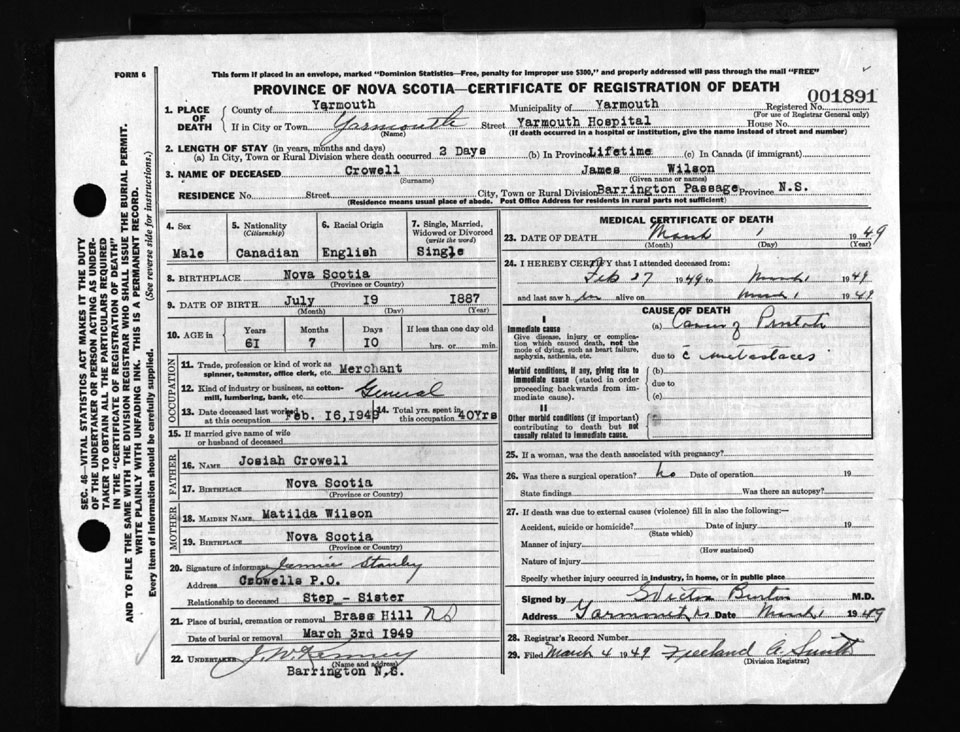 FORM 6
This form if placed in an envelope, marked "Dominion Statistics—Free, penalty for improper use $300," and properly addressed will pass through the mail "FREE"
PROVINCE OF NOVA SCOTIA—CERTIFICATE OF REGISTRATION OF DEATH
001891
1. PLACE OF DEATH
County of Yarmouth Municipality of Yarmouth Registered No.
(For use of Registrar General only)
If in City or Town Yarmouth Street Yarmouth Hospital House No.
(Name) (If death occurred in a hospital or institution, give the name instead of street and number)
2. LENGTH OF STAY (in years, months and days)
(a) In City, Town or Rural Division where death occurred 2 Days (b) In Province Lifetime (c) In Canada (if immigrant)
3. NAME OF DECEASED Crowell James Wilson
(Surname) (Given name or names)
RESIDENCE No. Street City, Town or Rural Division Barrington Passage Province N.S.
(Residence means usual place of abode. Post Office Address for residents in rural parts not sufficient)
4. Sex 5. Nationality (Citizenship) 6. Racial Origin 7. Single, Married, Widowed or Divorced (write the word)
Male Canadian English Single
8. BIRTHPLACE Nova Scotia
(Province or Country)
9. DATE OF BIRTH July 19 1887
(Month) (Day) (Year)
10. AGE in Years Months Days If less than one day old
61 7 10 hrs. or min.
OCCUPATION
11. Trade, profession or kind of work as spinner, teamster, office clerk, etc. Merchant
12. Kind of industry or business, as cotton-mill, lumbering, bank, etc. General
13. Date deceased last worked at this occupation Feb. 16, 1949 14. Total yrs. spent in this occupation 40Yrs
15. If married give name of wife or husband of deceased
FATHER
16. NAME Josiah Crowell
17. BIRTHPLACE Nova Scotia
(Province or Country)
MOTHER
18. MAIDEN NAME Matilda Wilson
19. BIRTHPLACE Nova Scotia
(Province or Country)
20. Signature of informant Jennie Stanley
Address Crowells P.O.
Relationship to deceased Step - Sister
21. Place of burial, cremation or removal Brass Hill NS
Date of burial or removal March 3rd 1949
22. UNDERTAKER J. W. Kenney
(Name and address)
Barrington N.S.
MEDICAL CERTIFICATE OF DEATH
23. DATE OF DEATH March 1 1949
(Month) (Day) (Year)
24. I HEREBY CERTIFY that I attended deceased from:
Feb 27 1949 to March 1 1949
and last saw h im alive on March 1 1949
CAUSE OF DEATH
I
Immediate cause
Give disease, injury or complication which caused death, not the mode of dying, such as heart failure, asphyxia, asthenia, etc.
(a) Cancer of Prostate
due to c metastaces
Morbid conditions, if any, giving rise to immediate cause (stated in order proceeding backwards from immediate cause).
(b)
due to
(c)
II
Other morbid conditions (if important) contributing to death but not causally related to immediate cause.
25. If a woman, was the death associated with pregnancy?
26. Was there a surgical operation? No Date of operation 19
State findings Was there an autopsy?
27. If death was due to external causes (violence) fill in also the following:—
Accident, suicide or homicide? Date of injury 19
(State which)
Manner of injury
(How sustained)
Nature of injury
Specify whether injury occurred in industry, in home, or in public place
Signed by M.D.
Address Yarmouth NS Date March 1 1949
28. Registrar's Record Number
29. Filed March 4 1949 Freeland A. Smith
(Division Registrar)
SEC. 46—VITAL STATISTICS ACT MAKES IT THE DUTY
OF THE UNDERTAKER OR PERSON ACTING AS UNDER-
TAKER TO OBTAIN ALL THE PARTICULARS REQUIRED
IN THE "CERTIFICATE OF REGISTRATION OF DEATH"
AND TO FILE THE SAME WITH THE DIVISION REGISTRAR WHO SHALL ISSUE THE BURIAL PERMIT.
WRITE PLAINLY WITH UNFADING INK. THIS IS A PERMANENT RECORD.
Every item of Information should be carefully supplied. (See reverse side for instructions.)